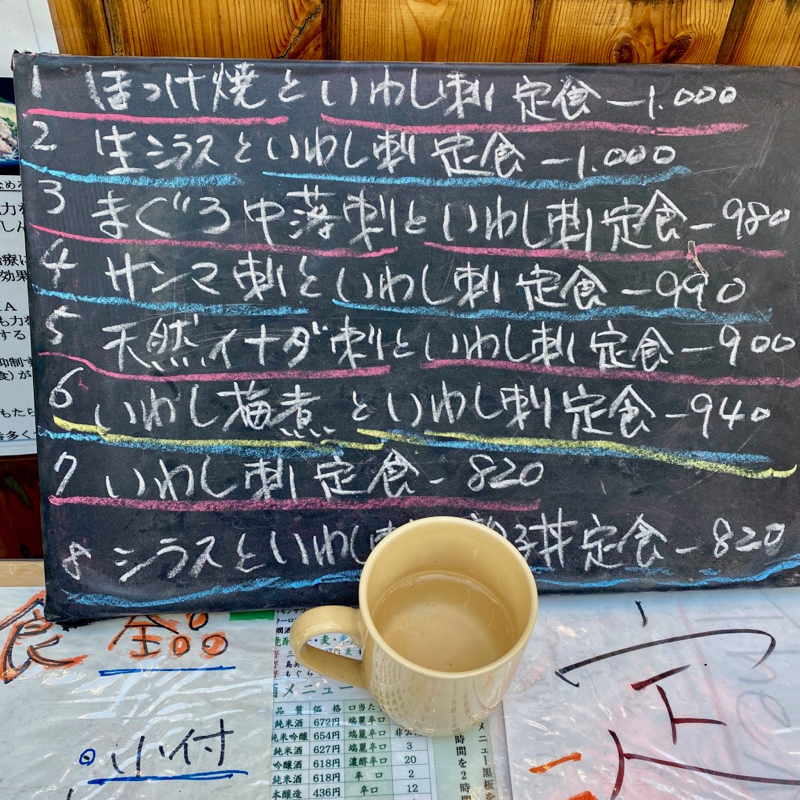 1 ほっけ焼といわし刺定食-1.000
2 生シラスといわし刺定食-1.000
3 まぐろ中落刺といわし刺定食-980
4 サンマ刺といわし刺定食-990
5 天然イナダ刺といわし刺定食-900
6 いわし梅煮といわし刺定食-940
7 いわし刺定食-820
8 シラスといわし 丼定食-820
食 全品
小付
メニュー
品質 価格 口当た
純米酒 672円 端麗辛口
純米吟醸 654円 端麗辛口
純米酒 627円 端麗辛口 3
吟醸酒 618円 濃醇辛口 20
純米酒 618円 辛口 2
本醸造 436円 辛口 12
メニュー黒板を
時間を2時